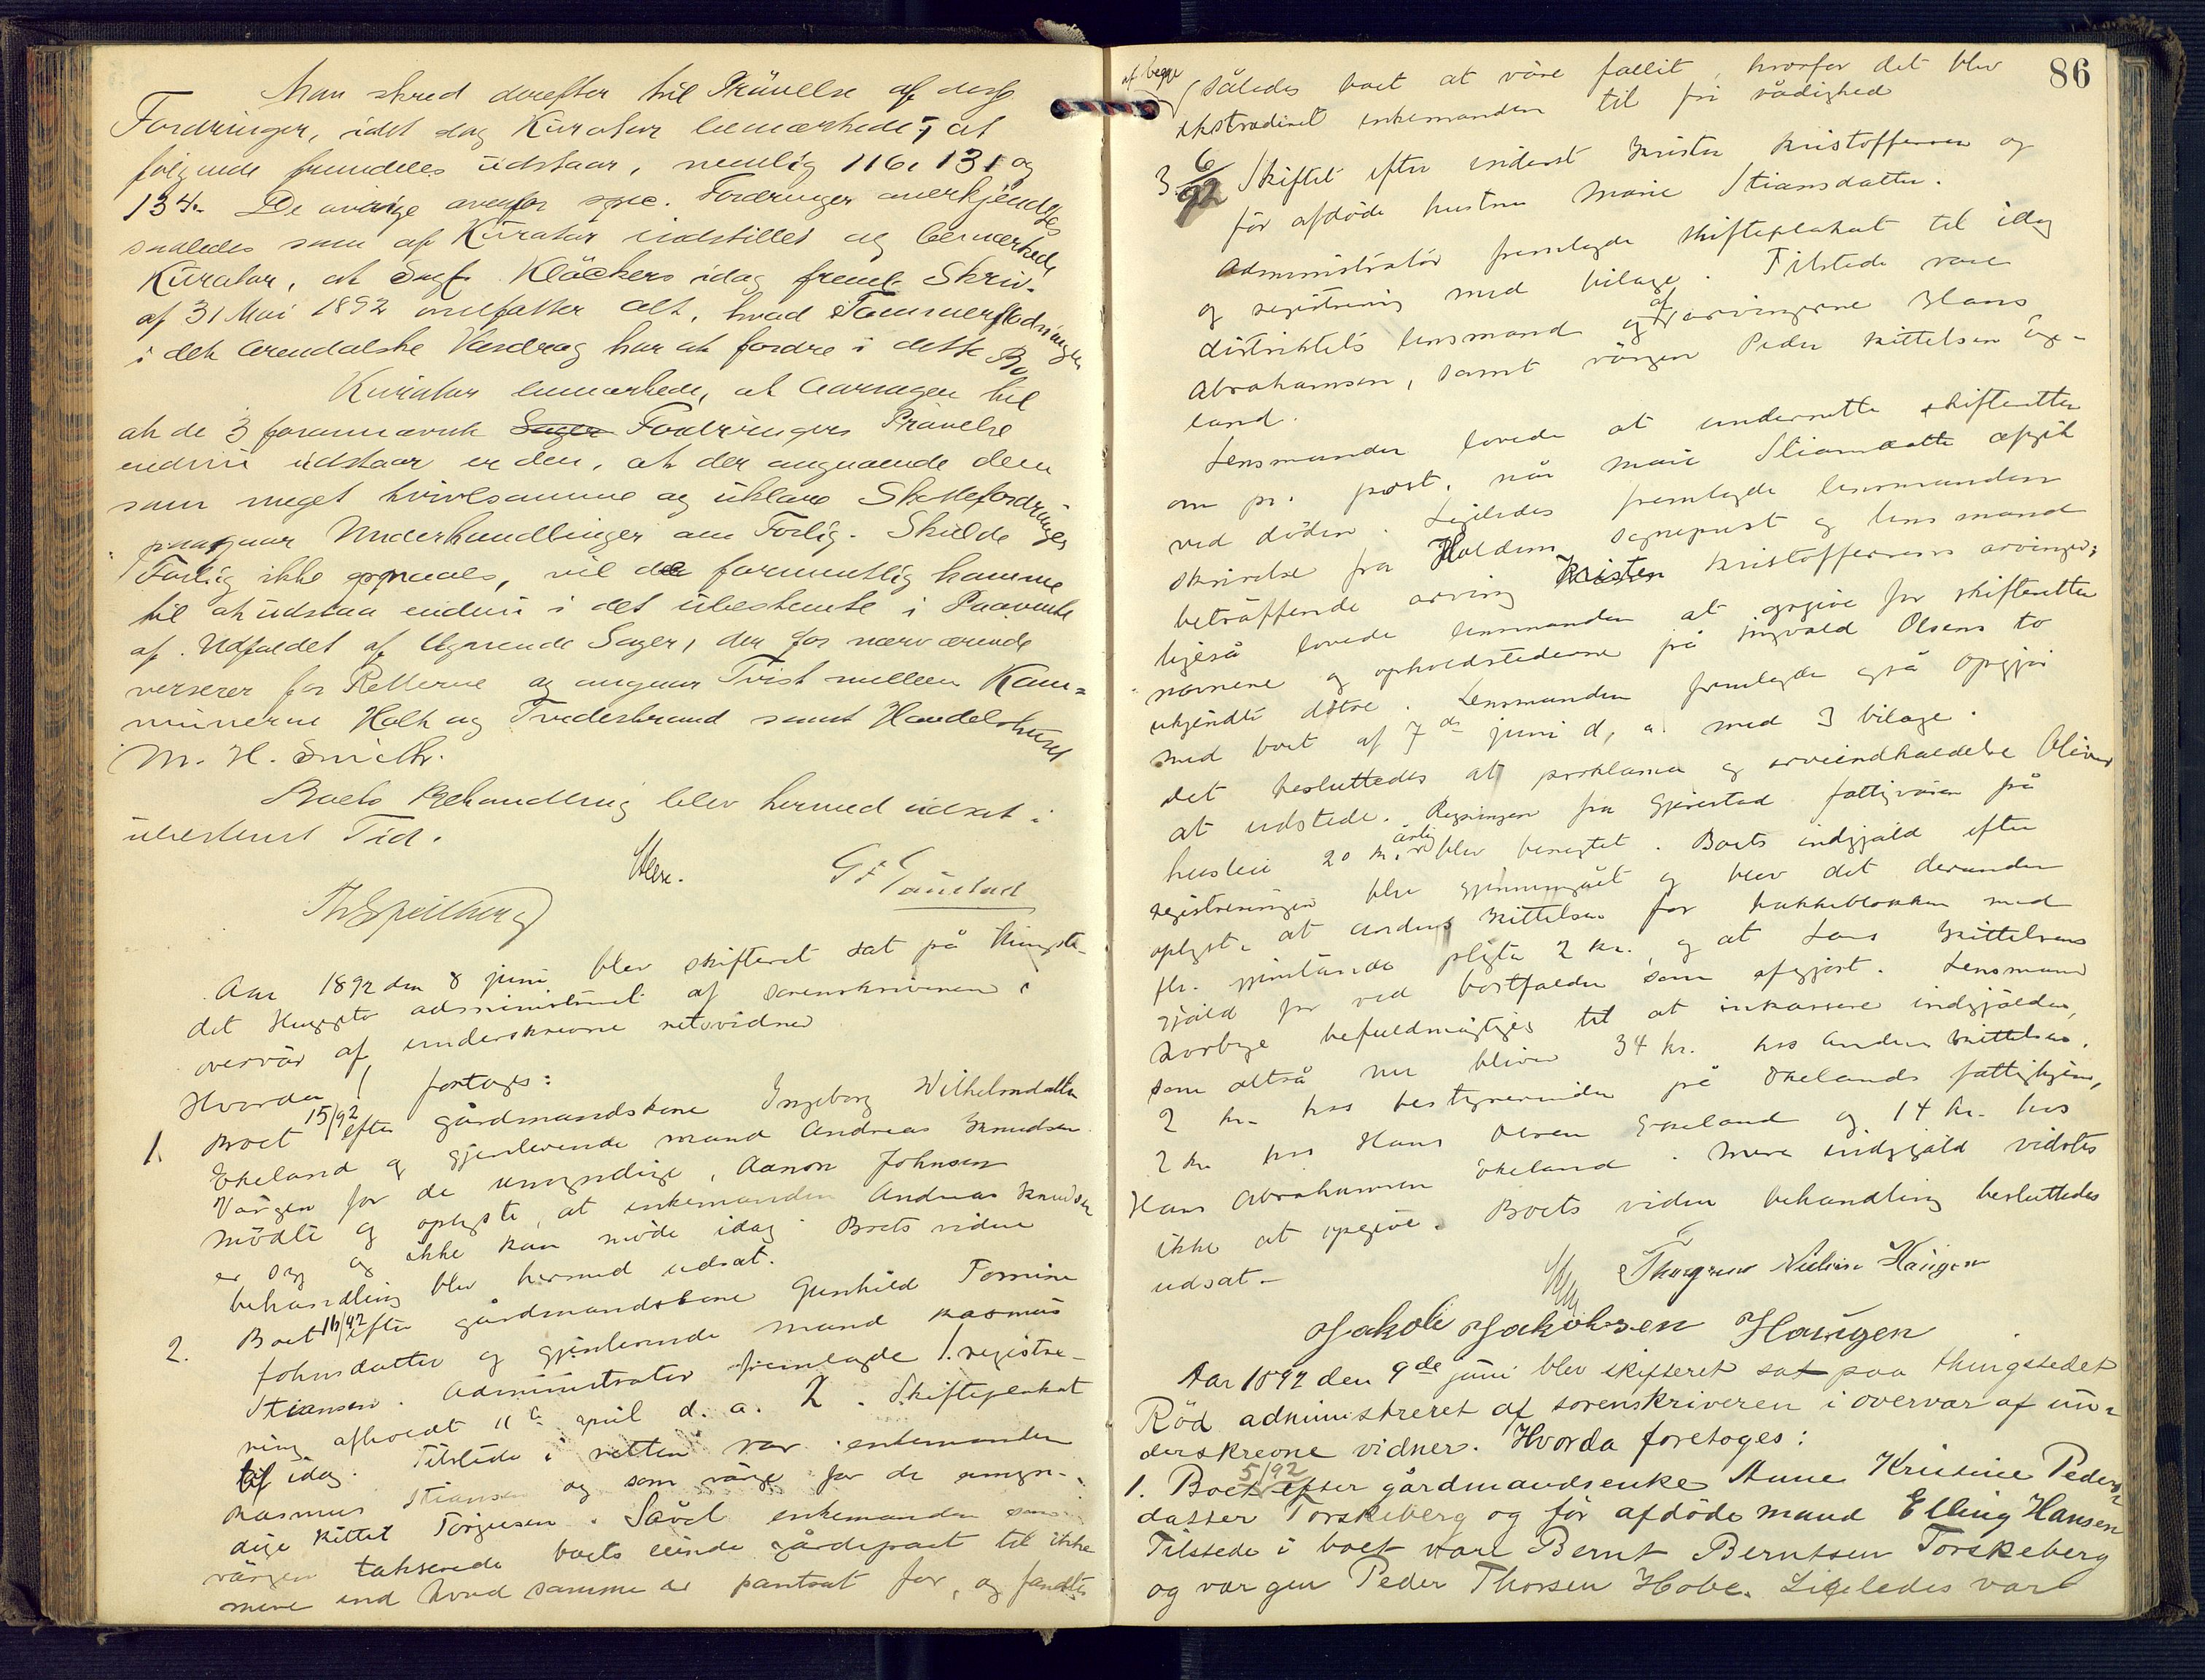 Man skred derefter til Prüvelse af disse
Fordringer, idet dog Kurator bemærkede, at
følgende fremdeles udstaar, nemlig 116, 131 og
134. De øvrige ovenfor spec. Fordringer anerkjendtes
saaledes som af Kurator indstillet og bemærkede
Kurator, at Sagf. Kløckers idag freml. Skriv.
af 31 Mai 1892 omfatter alt, hvad Tømmerflødningen
i det Arendalske Vasdrag har at fordre i dette Bo
Kurator bemærkede, at Aarsagen til
at de 3 forannævnte Sager Fordringers Prøvelse
endnu udstaar er den, at der angaaende dem
som meget tvivlsomme og uklare Skattefordringer
paagaar Underhandlinger om Forlig. Skulde
Forlig ikke opnaaes, vil de formentlig komme
til at udstaa endnu i det ubestemte i Paavente
af Udfaldet af lignende Sager, der for nærværende
verserer for Retterne og angaar Tvist mellem Kom=
munerne Holt og Tvedestrand samt Handelshuset
M. H. Smith.
Boets Behandling blev hermed udsat i
ubestemt Tid.
G F Gaustad
Aar 1892 den 8 juni blev skifteret sat på thingste-
det administreret af sorenskriveren i
overvær af underskrevne retsvidner
Hvorda fortoges:
1. Boet 15/92 efter gårdmandskone Ingeborg Wilhelmsdatter
Ekeland og gjenlevende mand Andreas Knudsen
Värgen for de umyndige, Aanon Johnsen
mödte og oplyste, at enkemanden Andreas Knudsen
er syg og ikke kan möde idag. Boets videre
behandling blev hermed udsat.
2. Boet 16/92 efter gårdmandskone Gunhild Tomine
Johnsdatter og gjenlevende mand Rasmus
Stiansen. Administrator fremlagde 1. registre-
ring afholdt 11te april d. a. 2. Skifteplakat
til idag. Tilstede i retten var enkemanden
Rasmus Stiansen og som värge for de umyn-
dige Kittel Torjusen. Såvel enkemanden som
värgen takserede boets eiende gårdepart til ikke
mere end hvad samme er pantsat for, og fandtes
86
af begge
således boet at väre fallit, hvorfor det blev
ekstraderet enkemanden til fri rådighed
3. 6/92 Skiftet efter inderst Kristen Kristoffersen og
för afdöde hustru Marie Stiansdatter.
Administratör fremlagde skifteplakat til idag
og registrering med bilage. Tilstede vare
distriktets lensmand og af arvingerne Hans
Abrahamsen, samt värgen Peder Kittelsen Äge-
land.
Lensmanden lovede at underrette skifteretten
om pr. post, når Marie Stiansdatter afgik
ved döden. Ligeledes fremlagde lensmanden
skrivelse fra Holdens sognepræst og lensmand
beträffende arving Kristen Kristoffersens arvinger;
ligeså lovede lensmanden at opgive for skifteretten
navnene og opholdstederne på Ingvald Olsens to
ukjendte dötre. Lensmanden fremlagde også opgjör
med boet af 7de juni d, a. med 3 bilage.
Det besluttedes at proklama og arveindkaldelse bliver
at udstede. Regningen fra Gjerestad fattigväsen på
husleie 20 kr. årlig blev benegtet. Boets indgjäld efter
registreringen blev gjennemgået og blev det derunder
oplyst, at Anders Kittelsen for hakkeblokken med
fl. gjenstande pligter 2 kr. og at Lars Kittelsens
gjäld for ved bortfalder som afgjort. Lensmand
befuldmägtiges til at inkassere indgjälden,
som altså nu bliver 34 kr. hos Anders Kittelsen.
2 kr. hos bestyrerinden på Ekelands fattighjem,
2 kr hos Hans Olsen Egeland og 14 kr. hos
Hans Abrahamsen Ekeland. Mere indgjäld vidstes
ikke at opgive. Boets viden behandling besluttedes
udsat.
Nielsen Haugen
Jakob Jakobsen Haugen
Aar 1892 den 9de juni blev skifteret sat paa thingstedet
Röd administreret af sorenskriveren i overvær af un-
derskrevne vidner. Hvorda foretoges:
1. Boet 5/92 efter gårdmandsenke Anne Kristine Peders-
datter Torskeberg og för afdöde mand Elling Hansen
Tilstede i boet vare Bernt Berntsen Torskeberg
og vergen Peder Thorsen Hobe. Ligeledes var